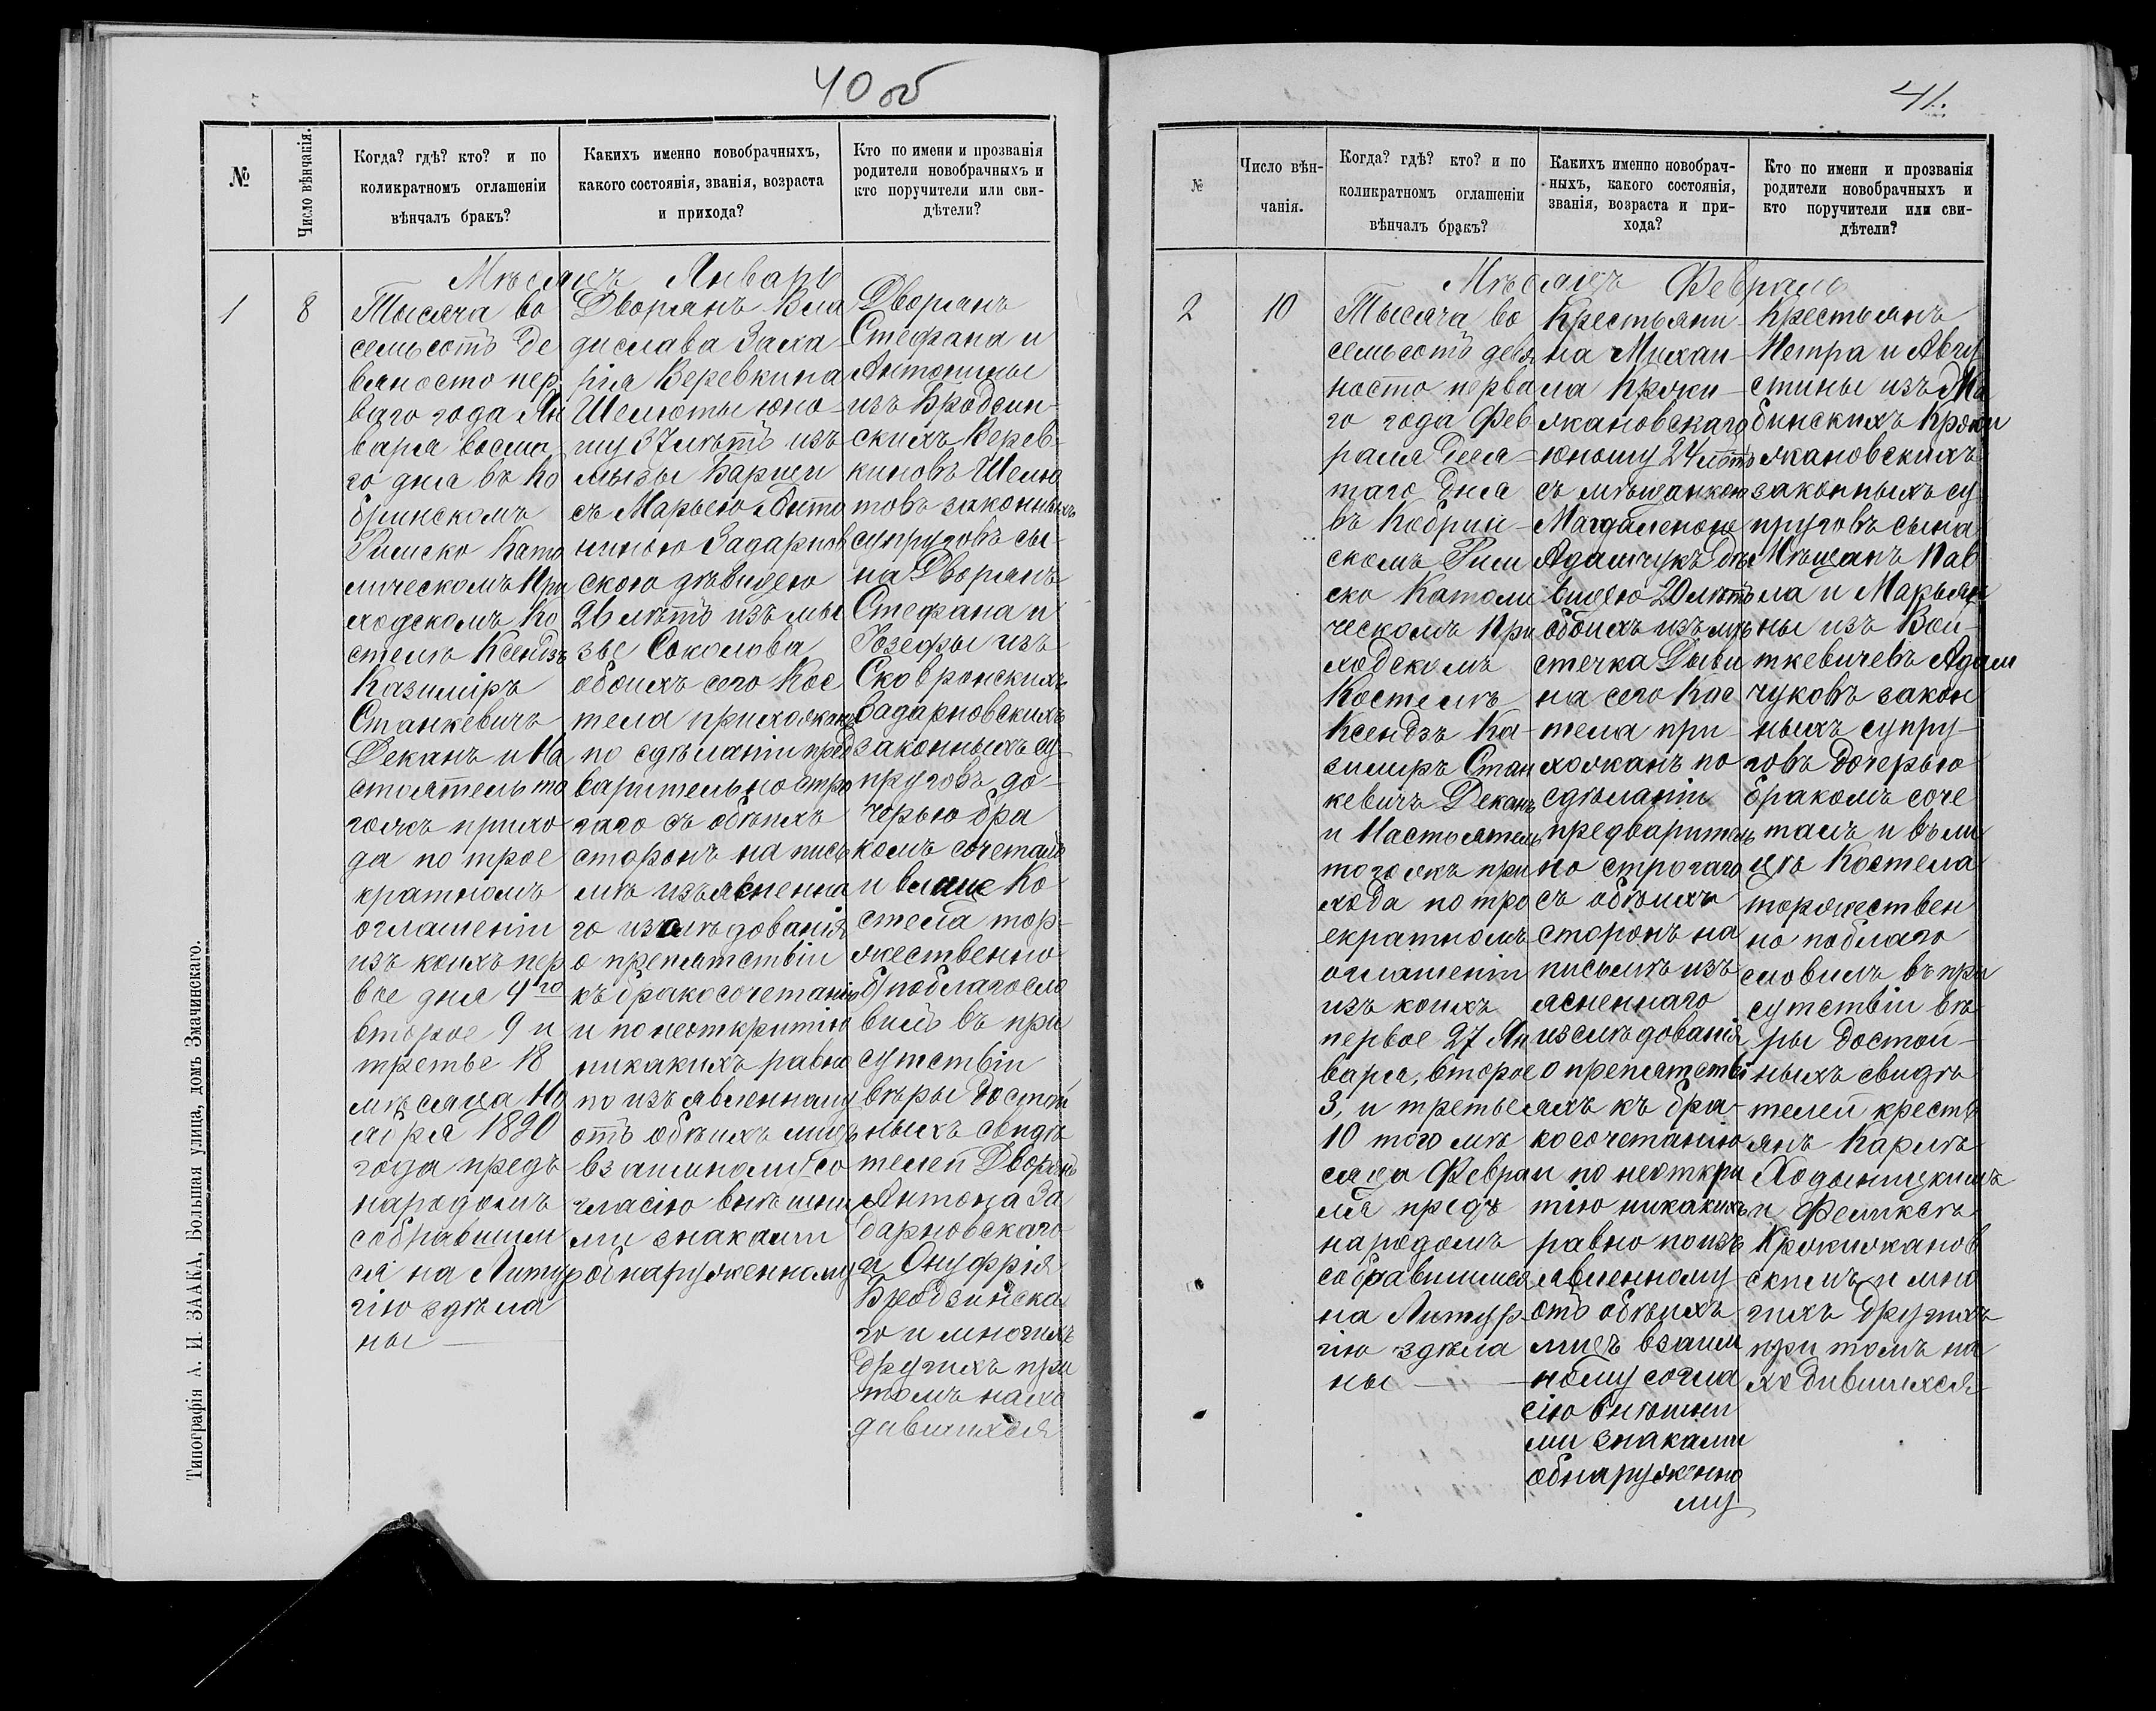 40 об
№
Число вѣнчанія.
Когда? гдѣ? кто? и по
коликратномъ оглашеніи
вѣнчалъ бракъ?
Какихъ именно новобрачныхъ,
какого состоянія, званія, возраста
и прихода?
Кто по имени и прозванія
родители новобрачныхъ и
кто поручители или сви-
дѣтели?
Мѣсяцъ Январь
1
8
Тысяча во
семьсотъ де
вяносто пер
ваго года Ян
варя восьма
го дня въ Ко
бринскомъ
Римско Като
лическомъ При
ходскомъ Ко
стелѣ Ксендзъ
Казиміръ
Станкевичъ
Деканъ и На
стоятель то
гожъ прихо
да по трое
кратномъ
оглашеніи
изъ коихъ пер
вое дня 4го
второе 9 и
третье 18
мѣсяца Но
ября 1890
года предъ
народомъ
собравшим
ся на Литур
гію здѣла
ны
Дворянъ Вла
дислава Заха
рія Веревкина
Шелюты юно-
шу 37 лѣтъ изъ
мызы Барщи
съ Марьею Анто
ниною Задарнов
скою дѣвицею
26 лѣтъ изъ мы
зы Соколова
обоихъ сего Кос
тела прихожанъ
по сдѣланіи пред
варительно стро
гаго съ обѣихъ
сторонъ на пись
мѣ изъясненна
го изслѣдованія
о препятствіи
къ бракосочетанію
и по неоткритію
никакихъ равно
по изъявленному
отъ обѣихъ лицъ
взаимному со
гласію внѣшни
ми знаками
обнаруженному
Дворянъ
Стефана и
Антонины
изъ Бродзин-
скихъ Верев-
киновъ Шелю
товъ законныхъ
супруговъ сы-
на Дворянъ
Стефана и
Юзефы изъ
Сковронскихъ
Задарновскихъ
законныхъ су-
пруговъ до-
черью бра
комъ сочеталъ
и влице Ко
стела тор-
жественно
поблагосло
вилъ въ при
сутствіи
вѣры достой
ныхъ свидѣ
телей Дворянъ
Антона За
дарновскаго
и Онуфрія
Бродзинска
го и многихъ
другихъ при
томъ нахо
дившихся
Типографія А. И. ЗААКА, Большая улица, домъ Змачинскаго.
41.
№
Число вѣн-
чанія.
Когда? гдѣ? кто? и по
коликратномъ оглашеніи
вѣнчалъ бракъ?
Какихъ именно новобрач-
ныхъ, какого состоянія,
званія, возраста и при-
хода?
Кто по имени и прозванія
родители новобрачныхъ и
кто поручители или сви-
дѣтели?
Мѣсяцъ Февраль
2
10
Тысяча во
семьсотъ девя
носто перва
го года Фев
раля Деся-
таго дня
въ Кобрин-
скомъ Рим
ско Католи
ческомъ При
ходскомъ
Костелѣ
Ксендзъ Ка-
зиміръ Стан
кевичъ Деканъ
и Настоятель
тогожъ при
хода по тро
екратномъ
оглашеніи
изъ коихъ
первое 27 Ян
варя, второе
3, и третье
10 того мѣ
сяца Февра
ля предъ
народомъ
собравшимся
на Литур-
гію здѣла
ны
Крестьяни-
на Михаи-
ла Кржи-
жановскаго
юношу 24 лѣтъ
съ мѣщанкою
Магдаленою
Адамчукъ дѣ
вицею 20 лѣтъ
обоихъ изъ мѣ
стечка Дыви
на сего Кос
тела при-
хожанъ по
сдѣланіи
предваритель
но строгаго
съ обѣихъ
сторонъ на
письмѣ изъ
ясненнаго
изслѣдованія
о препятстві
яхъ къ бра-
косочетанію
и по неоткри
тію никакихъ
равно по изъ
явленному
отъ обѣихъ
лицъ взаим
ному согла
сію внѣшни
ми знаками
обнаруженно
му
Крестьянъ
Петра и Авгу
стины изъ
Кржи
жановскихъ
законныхъ су
пруговъ сына
Мѣщанъ Пав
ла и Марьян
ны изъ Вой-
ткевичевъ Адам
чуковъ закон
ныхъ супру-
говъ дочерью
бракомъ соче
талъ и въ ли
цѣ Костела
торжествен
но поблаго
словилъ въ при
сутствіи вѣ-
ры достой-
ныхъ свидѣ
телей кресть
янъ Карлѣ
Ходыницкимъ
и Феликсѣ
Кржижанов
скимъ и мно
гихъ другихъ
при томъ на
ходившихся